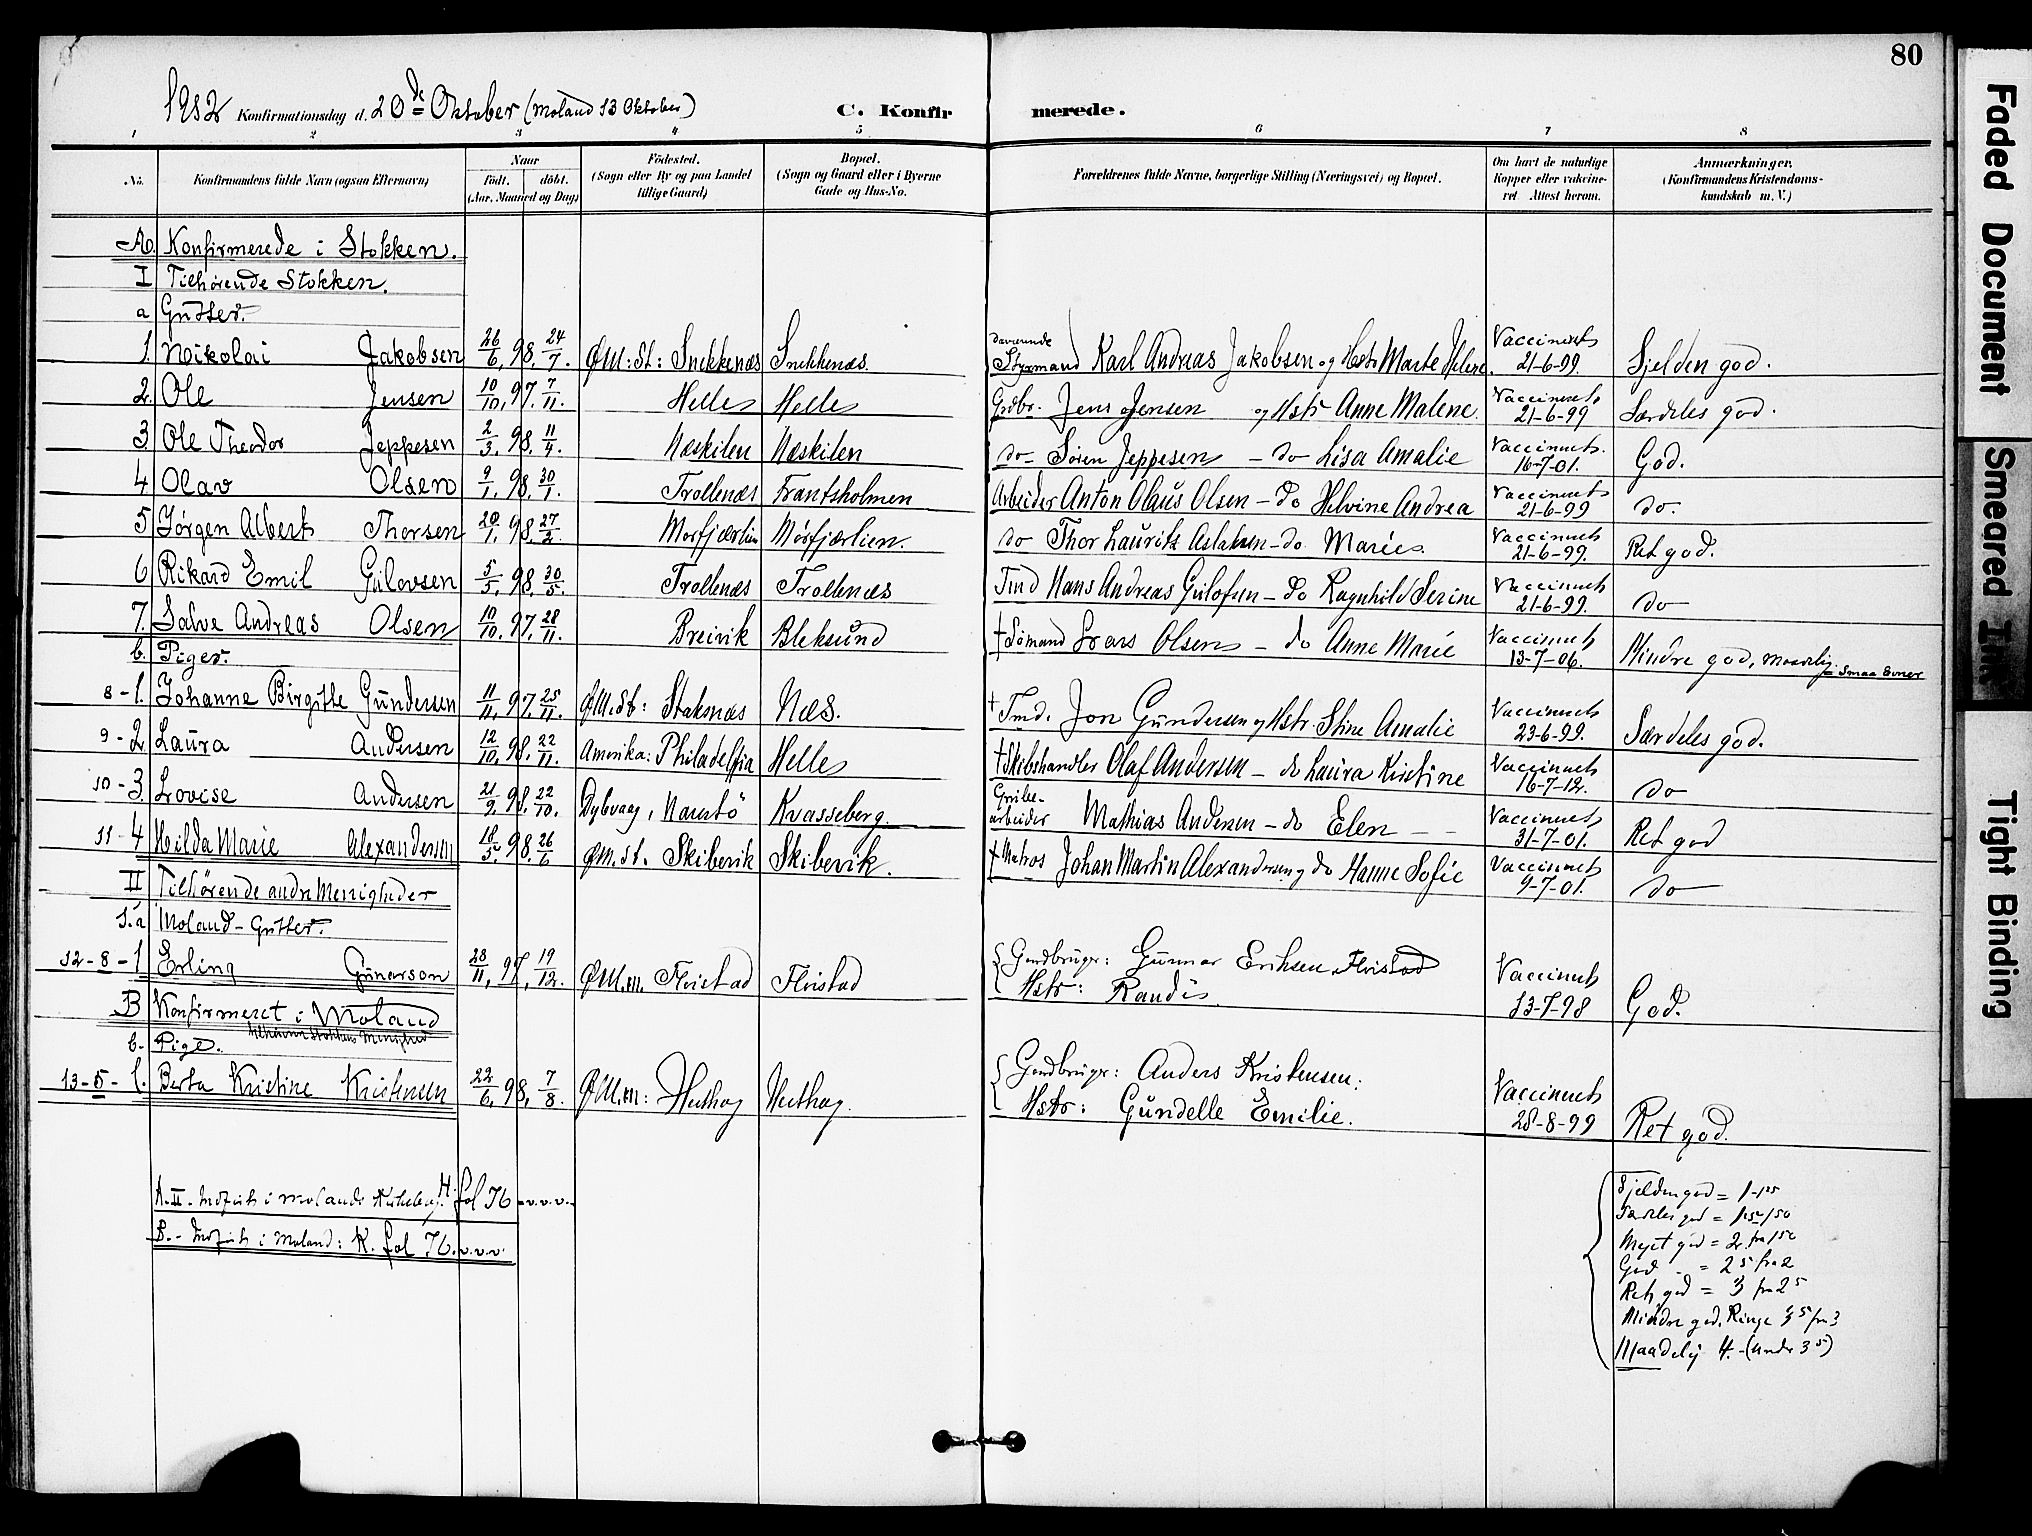 80
1912 Konfirmationsdag d. 20de Oktober (Moland 13 Oktober) C. Konfirmerede.
1 2 3 4 5 6 7 8
No. Konfirmandens fulde Navn (ogsaa Efternavn) Naar født. døbt. (Aar, Maaned og Dag) Fødested. (Sogn eller By og paa Landet tillige Gaard) Bopæl. (Sogn og Gaard eller i Byerne Gade og Hus-No. Forældrenes fulde Navne, borgerlige Stilling (Næringsvei) og Bopæl. Om havt de naturlige Kopper eller vakcineret Attest herom. Anmærkninger. (Konfirmandens Kristendomskundskab m. V.)
A. Konfirmerede i Stokken.
I Tilhørende Stokken.
a Gutter.
1. Nikolai Jakobsen 26/6. 98. 24/7. ØM: St: Snekkenæs Snekkenæs. Styrmand Karl Andreas Jakobsen og Hstr Marte Helene. Vaccineret 21-6-99. Sjelden god.
2. Ole Jensen 10/10. 97. 7/11. Helle Helle Grdbr. Jens Jensen og Hstr Anne Malene. Vaccineret 21-6-99 Særdeles god.
3. Ole Theodor Jeppesen 2/3. 98. 11/4. Næskilen Næskilen do Søren Jeppesen - do Lisa Amalie Vaccineret. 16-7-01. God.
4. Olav Olsen 9/1. 98. 30/1. Trollenæs Frantsholmen Arbeider Anton Olaus Olsen - do Helvine Andrea Vaccineret 21-6-99 do.
5 Jørgen Albert Thorsen 20/1. 98. 27/2. Morfjærlien Morfjærlien. do Thor Laurits Aslaksen - do Marie. Vaccineret 21-6-99. Ret god.
6 Rikard Emil Gulovsen 5/5. 98. 30/5. Trollenæs Trollenæs Tmd Hans Andreas Gulofsen - do Ragnhild Serine Vaccineret 21-6-99. do
7. Salve Andreas Olsen 10/10. 97. 28/11. Breivik Bleksund † Sømand Lars Olsen - do Anne Marie Vaccineret 13-7-06. Mindre god, maadelig = smaa Evner
b. Piger.
8 - 1. Johanne Birgitte Gundersen 11/11. 97. 25/11. ØM. St: Staknæs Næs. † Tmd. Jon Gundersen og Hstr. Stine Amalie Vaccineret 23-6-99. Særdeles god.
9 - 2 Laura Andersen 12/10. 98. 22/11. Amerika: Philadelfia Helle † Skibshandler Olaf Andersen - do Laura Kristine Vaccineret 16-7-12. do
10 - 3. Lovise Andersen 21/9. 98. 22/10. Dybvaag, Narestø Kvasseberg. Grubearbeider Mathias Andersen - do Elen - - Vaccineret 31-7-01. Ret god
11 - 4 Hilda Marie Alexandersen 18/5. 98. 26/6 ØM. St. Skibevik Skibevik. † Matros Johan Martin Alexandersen og do Hanne Sofie Vaccineret 9-7-01. do
II Tilhørende andre Menigheder
1. a Moland - Gutter.
12 - 8 - 1 Erling Gunarson 28/11. 97. 19/12. ØM. m. Flristad Flristad Gaardbruger: Gunnar Eriksen Flristad
Hstr: Randi. Vaccineret 13-7-98 God.
B Konfirmeret i Moland
tilhørende Stokkens Menighed
b. Pige.
13 - 5 - 1. Berta Kristine Kristensen 22/6. 98. 7/8. ØM. m: Huthog Huthog. Gaardbruger: Anders Kristensen.
Hstr: Gundelle Emilie. Vaccineret 28-8-99 Ret god.
A. II - Indført i Molands Kirkebog H. fol 76 - v.v.v.
B. - Indført i Moland: K. fol 76. v.v.v.
Sjelden god = 1-1²⁵
Særdeles god = 1²⁵ 1⁵⁰
Meget god = 2 fra 1⁵⁰
God = 2⁵ fra 2
Ret god = 3 fra 2⁵
Mindre god, Ringe 3⁵ fra 3
Maadelig 4. - (under 3⁵)
Faded Document
Smeared Ink
Tight Binding